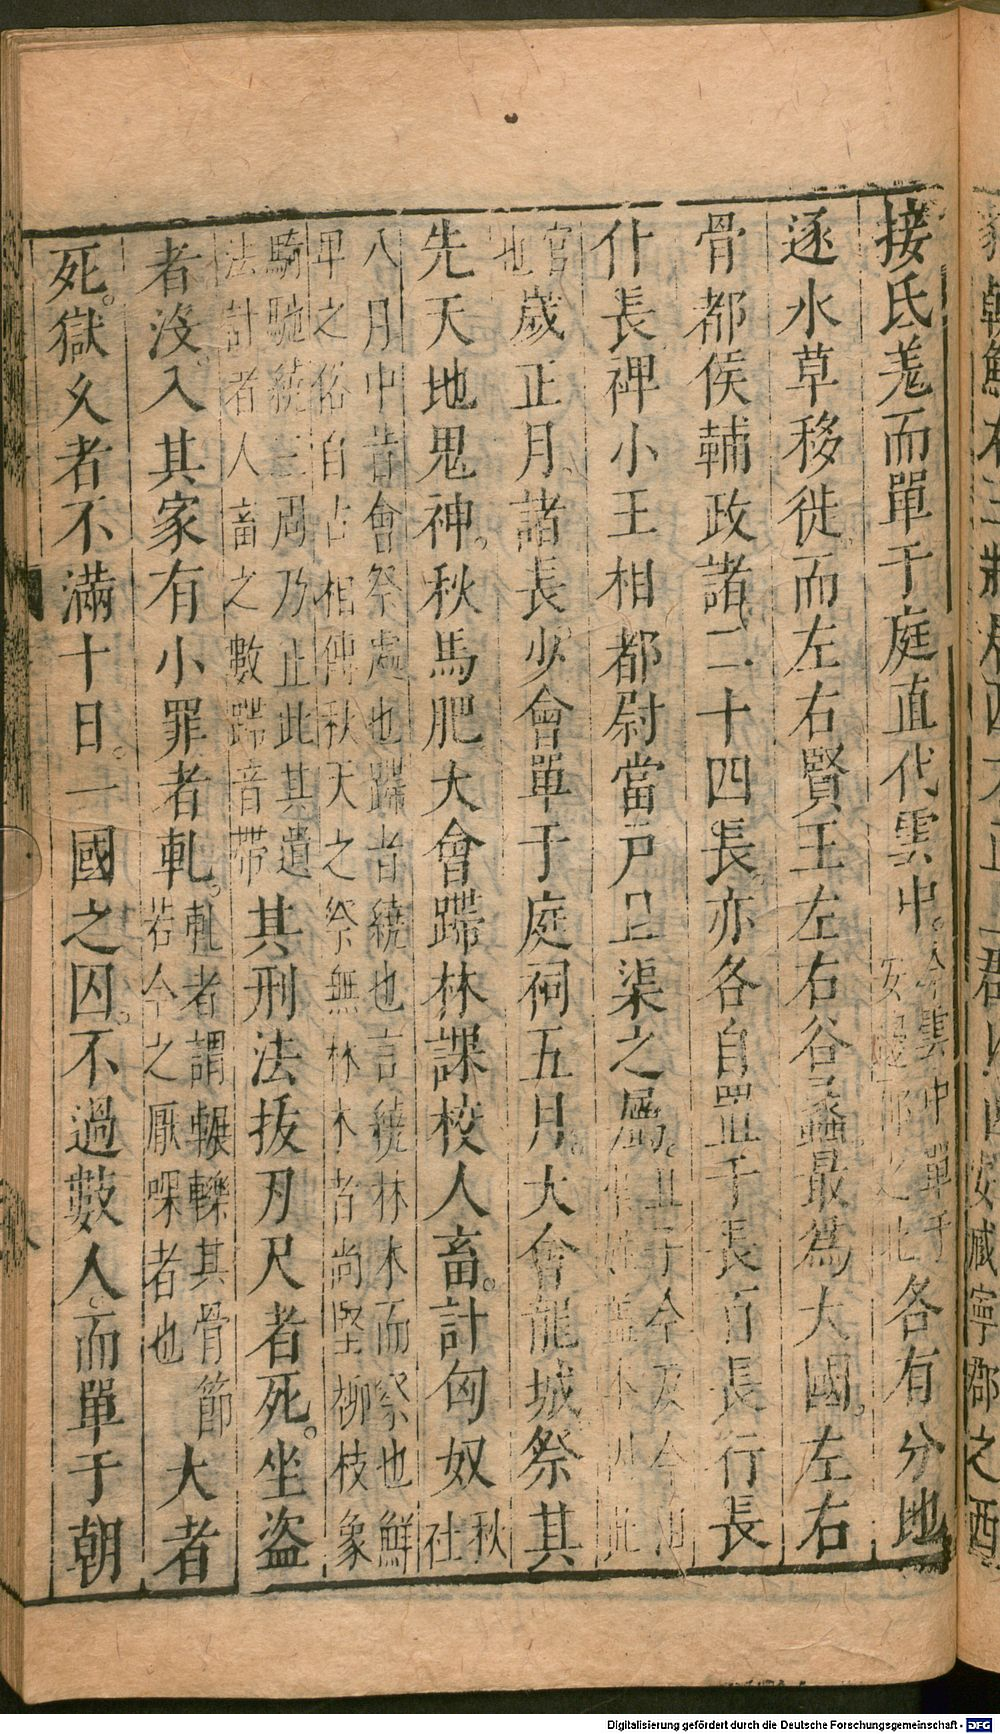 接氐羌而單于庭直代雲中今雲中單于安邊郡之北各有分地
逐水草移徙而左右賢王左右谷蠡最爲大國左右
骨都侯輔政諸二十四長亦各自置千長百長行長
什長裨小王相都尉當戶且渠之屬且子余反今
官也歲正月諸長少會單于庭祠五月大會龍城祭其
先天地鬼神秋馬肥大會蹛林課校人畜計匈奴秋社
八月中皆會祭處也蹛者繞也言繞林木而祭也鮮
卑之俗自古相傳秋天之祭無林木者尚竪柳枝象
騎馳繞三周乃止此其遺法計者人畜之數蹛音帶其刑法拔刃尺者死坐盜
者沒入其家有小罪者軋軋者謂輾轢其骨節若今之厭踝者也大者
死獄久者不滿十日一國之囚不過數人而單于朝
Digitalisierung gefördert durch die Deutsche Forschungsgemeinschaft - DFG